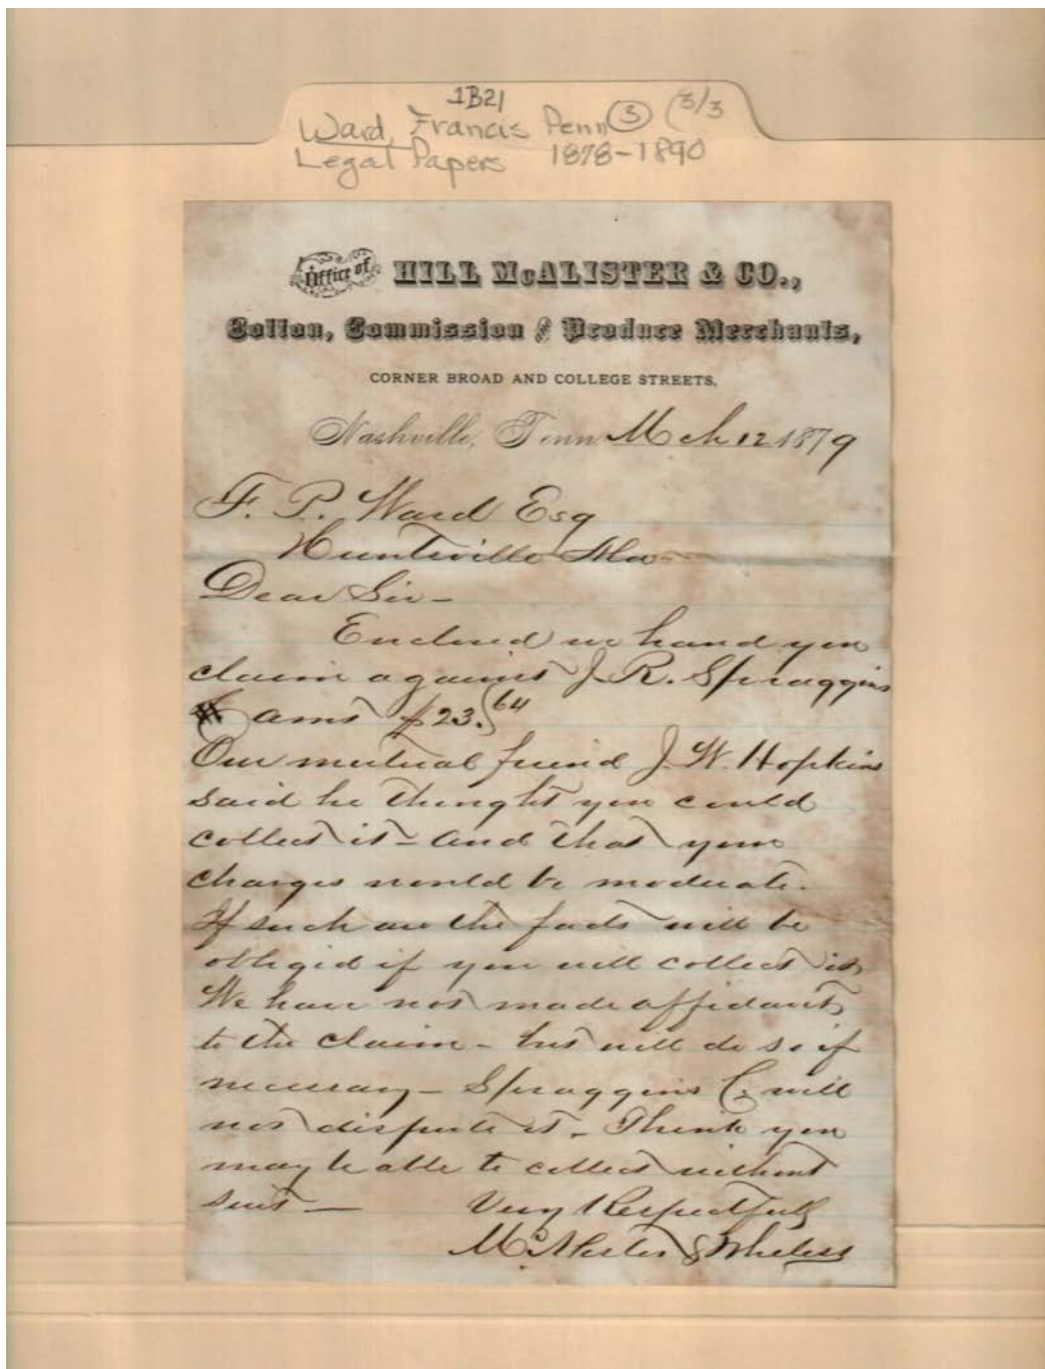 1B21
Ward, Francis Penn ③ (3/3
Legal Papers 1878-1890
Office of HILL McALISTER & CO.,
Cotton, Commission & Produce Merchants,
CORNER BROAD AND COLLEGE STREETS,
Nashville, Tenn Mch 12 1879
F. P. Ward Esq
Huntsville Ala
Dear Sir –
Enclosed we hand you
claim against J. R. Spraggins
amt $23.64
Our mutual friend J. W. Hopkins
said he thought you could
collect it – and that your
charges would be moderate.
If such are the facts will be
obliged if you will collect it.
We have not made affidavit
to the claim – but will do so if
necessary – Spraggins will
not dispute it – Think you
may be able to collect without
suit – Very Respectfully
McAlister & Wheless